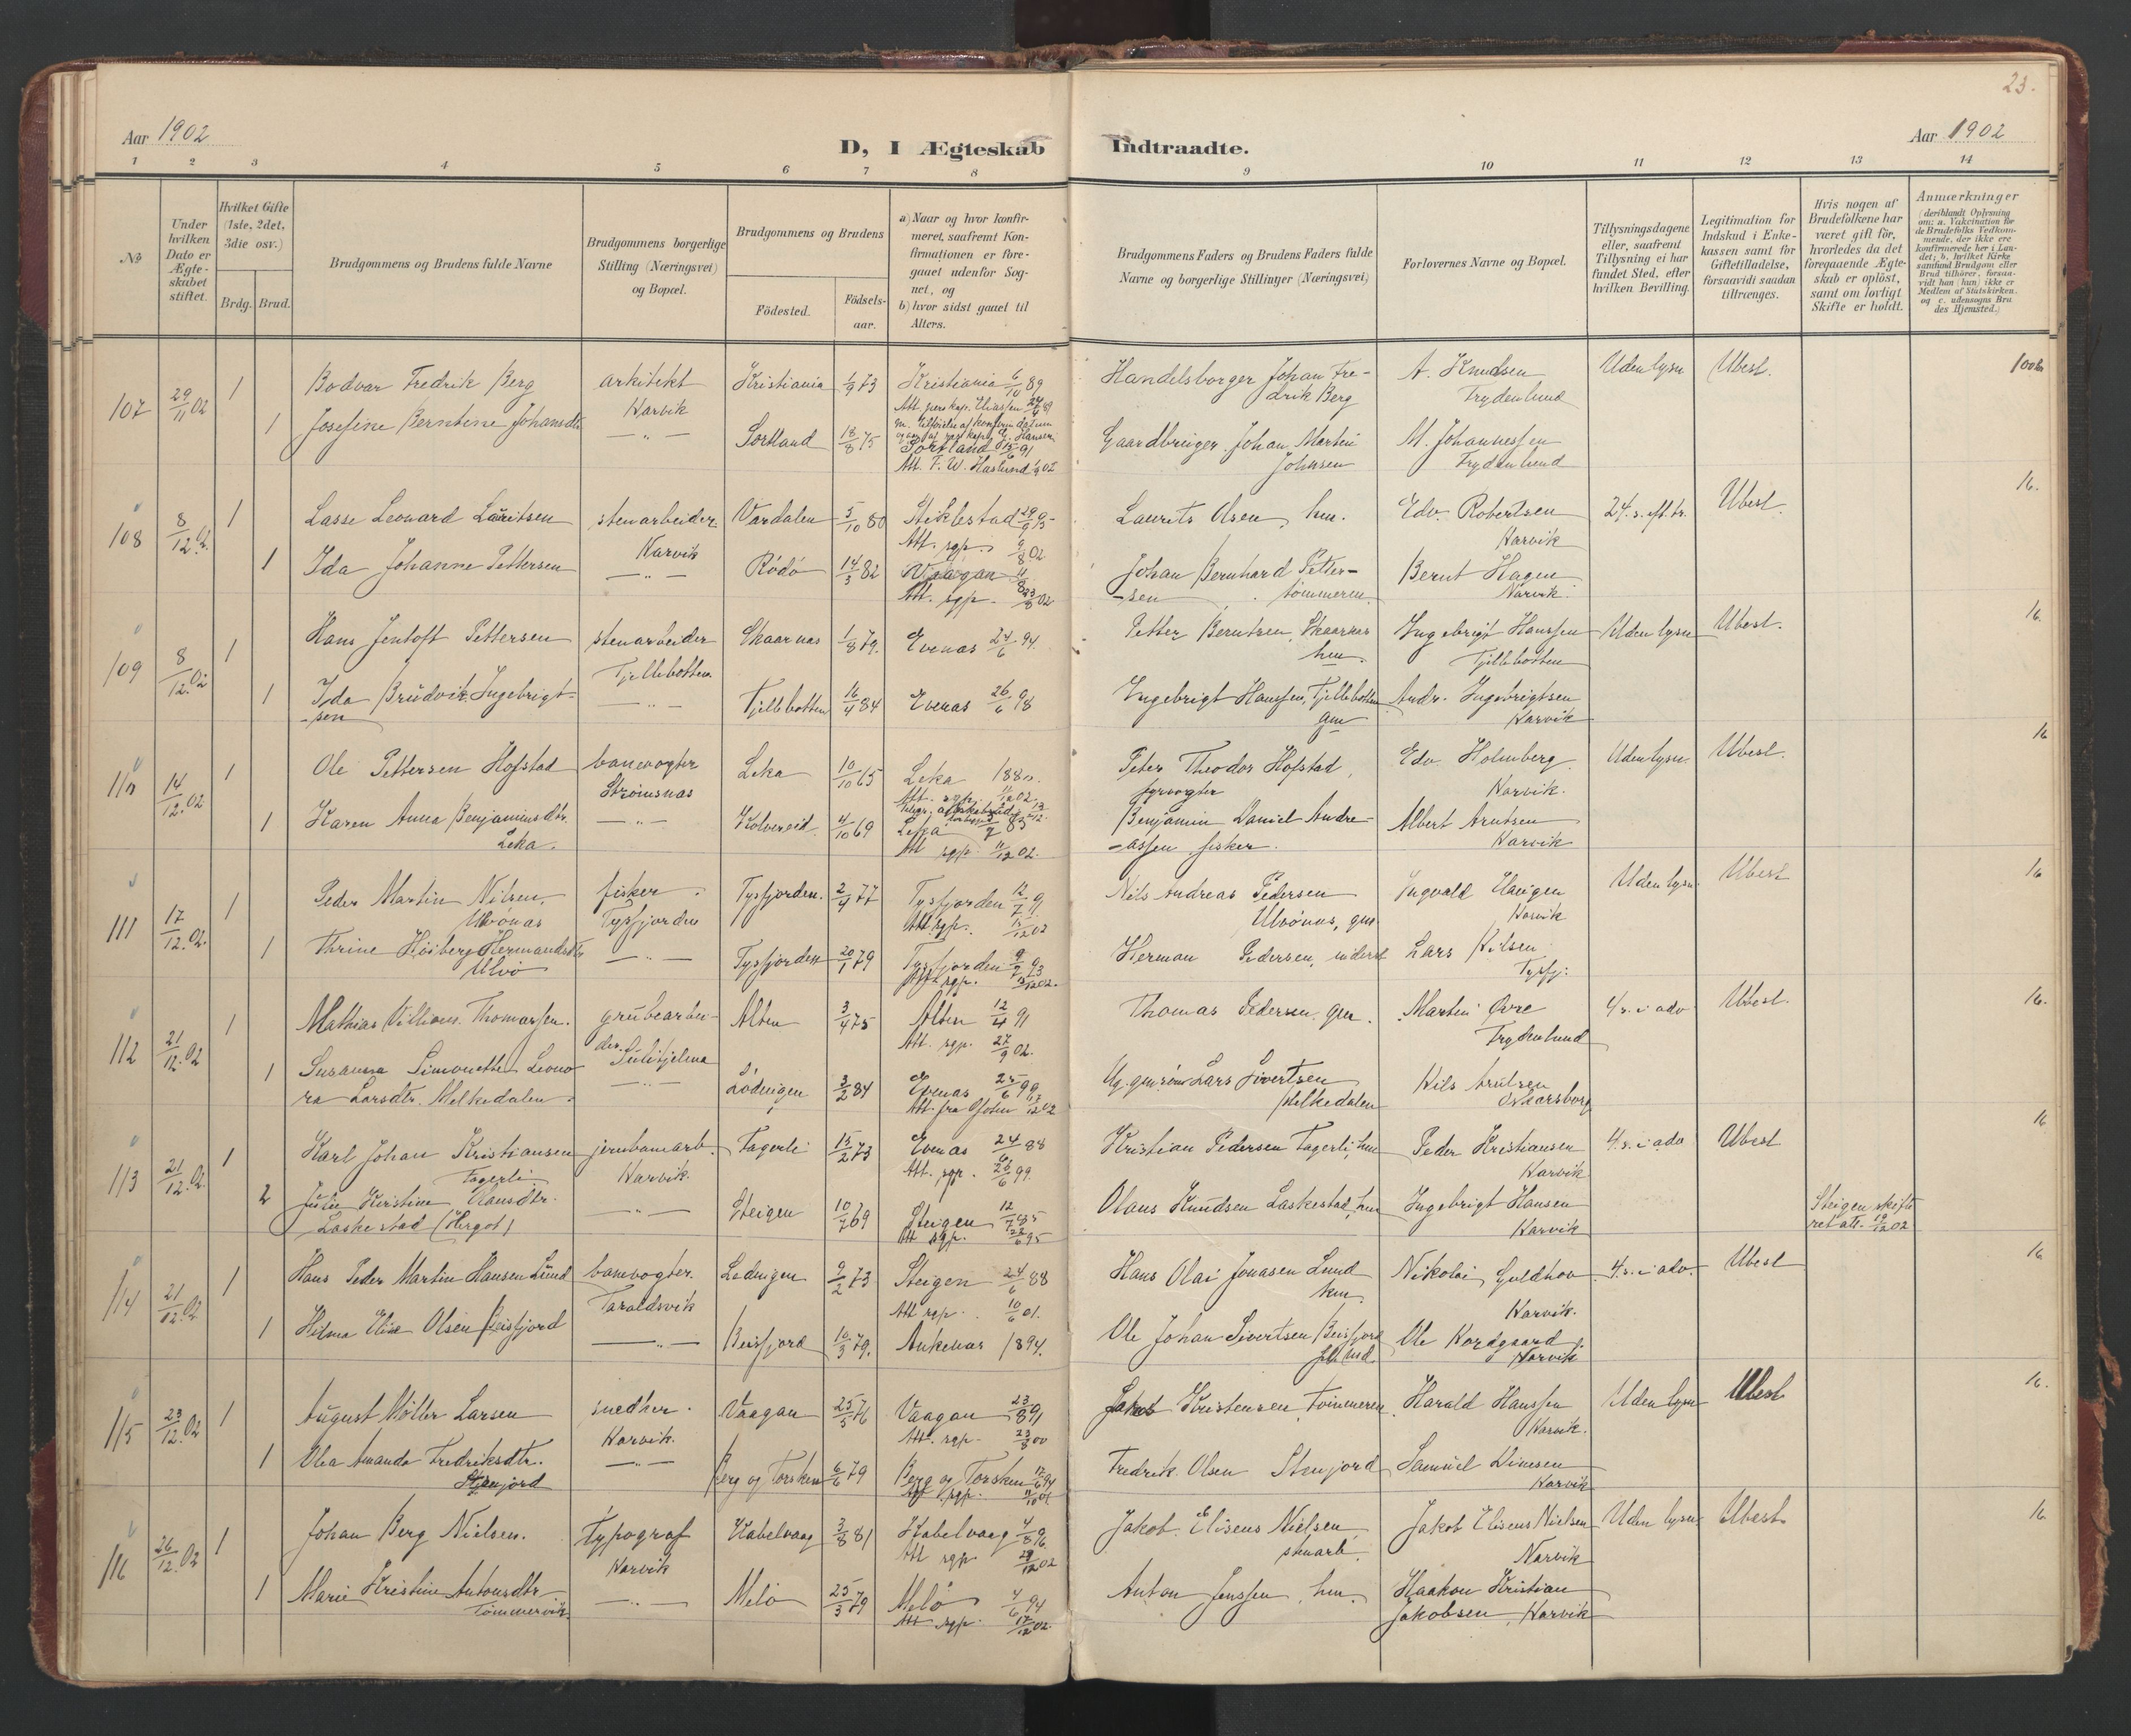 23.
Aar 1902
D, I Ægteskab Indtraadte.
Aar 1902
1 2 3 4 5 6 7 8 9 10 11 12 13 14
No
Under hvilken Dato er Ægte-skabet stiftet.
Hvilket Gifte (1ste, 2det, 3die osv.)
Brdg. Brud.
Brudgommens og Brudens fulde Navne
Brudgommens borgerlige Stilling (Næringsvei) og Bopæl.
Brudgommens og Brudens
Födested.
Födsels-aar.
a) Naar og hvor konfir-meret, saafremt Kon-firmationen er fore-gaaet udenfor Sog-net, og
b) hvor sidst gaaet til Alters.
Brudgommens Faders og Brudens Faders fulde Navne og borgerlige Stillinger (Næringsvei)
Forlovernes Navne og Bopæl.
Tillysningsdagene eller, saafremt Tillysning ei har fundet Sted, efter hvilken Bevilling.
Legitimation for Indskud i Enke-kassen samt for Giftetilladelse, forsaavidt saadan tiltrænges.
Hvis nogen af Brudefolkene har været gift för, hvorledes da det foregaaende Ægte-skab er oplöst, samt om lovligt Skifte er holdt.
Anmærkninger
(deriblandt Oplysning om: a. Vakcination for de Brudefolks Vedkom-mende, der ikke ere konfirmerede her i Lan-det; b. hvilket Kirke-samfund Brudgom eller Brud tilhörer, forsaa-vidt han (hun) ikke er Medlem af Statskirken. og c. udensogns Bru des Hjemsted.)
107 29/11 02 1 Bodvar Fredrik Berg arkitekt Kristiania 1/9 73 Kristiania 6/10 89 Handelsborger Johan Fre- A. Knudsen Uden lysn Ubest.
Narvik drik Berg Frydenlund
1 Josefine Berntine Johansdtr — " — Sortland 18/8 75 Sortland 91 Gaardbruger Johan Martin M. Johannessen
Att. F. W. Haslund 02 Johnsen Frydenlund
108 8/12 02. 1 Lasse Leonard Lauritsen stenarbeider Værdalen 5/10 80 Stiklestad Laurits Olsen, hm. Edv. Robertsen 24. s. eft. tr. Ubest. 16.
Narvik Att. sgp. 02 Narvik
1 Ida Johanne Pettersen — " — Rödö 14/3 82 Vaagan Johan Bernhard Petter- Bernt Hagen
Att. sgp. 02 -sen tömmerm. Narvik
109 8/12. 02 1 Hans Jentoft Pettersen stenarbeider Skaarnes 1/8 79. Evenæs 24/6 94. Petter Berntsen, Skaarnes Ingebrigt Hanssen Uden lysn Ubest. 16.
Fjellbotten hm. Fjellbotten
1 Ida Brudvik Ingebrigt- — " — Fjellbotten 16/4 84 Evenæs 26/6 98 Ingebrigt Hanssen, Fjellbotten Andr. Ingebrigtsen
-sen gm Narvik
110 14/12. 02 1 Ole Pettersen Hofstad banevogter Leka 10/10 65 Leka 1880. Peter Theodor Hofstad, Edv. Holmberg Uden lysn. Ubest. 16
Strömsnæs Att. sgp. 02. fyrvogter Narvik.
1 Karen Anna Benjaminsdtr. — " — Kolvereid 4/10 69 Leka 85 Benjamin Daniel Andre- Albert Arntsen
Leka. Att sgp. 11/12 02. -assen fisker. Narvik
111 17/12. 02. 1 Peder Martin Nilsen, fisker Tysfjorden. 2/4 77 Tysfjorden Nils Andreas Pedersen Ingvald Elvigen Uden lysn. Ubest 16
Ulvönæs Tysfjorden Att sgp. 02 Ulvönæs, gm Narvik
1 Thrine Höiberg Hermansdtr — " — Tysfjorden 20/1 79 Tysfjorden Herman Pedersen, inderst Lars Nilsen
Ulvö Att sgp. 02. Tysfj:
112 21/12. 02 1 Mathias Villiam Thomassen. grubearbei- Alten 3/4 75 Alten 12/4 91 Thomas Pedersen, gm. Martin Øvre 4. s. i adv. Ubest. 16.
der. Sulitjelma Att. sgp. 27/9 02. Frydenlund
1 Susanna Simonette Leono- — " — Lödingen 3/2 84 Evenæs 25/6 99 Ug. gm. sön Lars Sivertsen Nils Arntsen
ra Larsdtr. Melkedalen. Att. fra Ofoten 02 Melkedalen Oskarsborg
113 21/12. 02. 1 Karl Johan Kristiansen jernbanearb. Fagerli 15/2 73 Evenæs 24/6 88 Kristian Pedersen Fagerli, hm Peder Kristiansen 4. s. i adv Ubest 16
Fagerli Narvik. Att. sgp. 26/6 99. Narvik
2 Julie Kirstine Olausdtr. — " — Steigen 10/7 69 Steigen 12/7 85 Olaus Knudsen Laskestad, hm Ingebrigt Hansen Steigen skifte
Laskestad (Hergot) Att sgp. 95 Narvik ret att. 19/12 02
114 21/12. 02 1 Hans Peder Martin Hansen Lund banevogter. Lödingen 9/2 73 Steigen 24/6 88 Hans Olai Jonasen Lund Nikolai Guldhav 4. s. i adv. Ubest 16
Taraldsvik Att sgp. 10/6 01. hm. Narvik.
1 Hilma Elise Olsen Beisfjord — " — Beisfjord 16/3 79. Ankenæs 1894. Ole Johan Sivertsen Beisfjord Ole Nordgaard
Narvik
115 23/12. 02 1 August Möller Larsen snedker. Vaagan 25/5 76 Vaagan 23/8 91 Jakob Kristensen, tömmerm. Harald Hanssen Uden lysn Ubest 16.
Narvik. Att. sgp. 23/8 00 Narvik.
1 Olea Amanda Fredriksdtr. — " — Berg og Torsken 6/6 79 Berg og Torsken 94 Fredrik Olsen Stenjord Samuel Dinesen
Stenjord Att sgp. Narvik
116 26/12. 02 1 Johan Berg Nielsen. typograf Kabelvaag 3/8 81 Kabelvaag Jakob Eliseus Nielsen Jakob Eliseus Nielsen Uden lysn Ubest. 16
Narvik Att sgp 02 stenarb. Narvik
1 Marie Kristine Antonsdtr — " — Melö 25/3 79 Melö 4/6 94 Anton Jenssen, hm. Haakon Kristian
Tömmervik Att sgp. 17/12 02. Jakobsen, Narvik